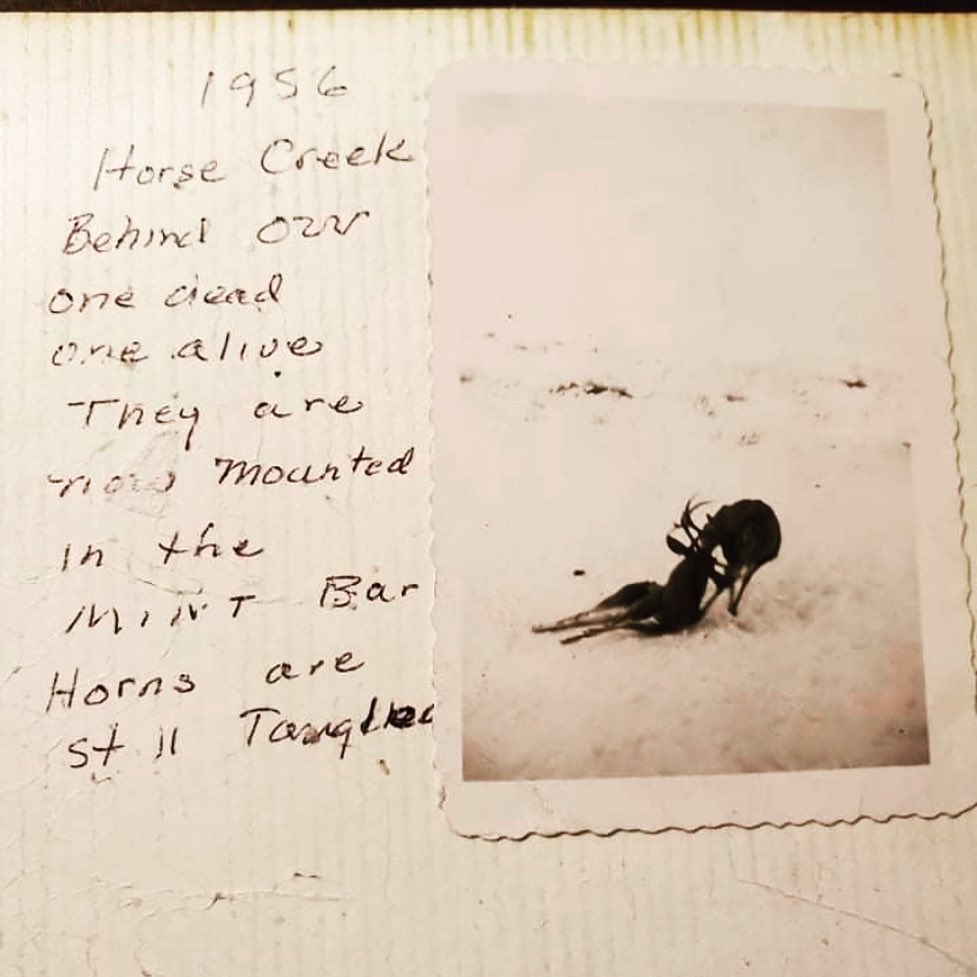 1956
Horse Creek
Behind our
one dead
one alive
They are
now mounted
in the
MINT Bar
Horns are
still Tangled